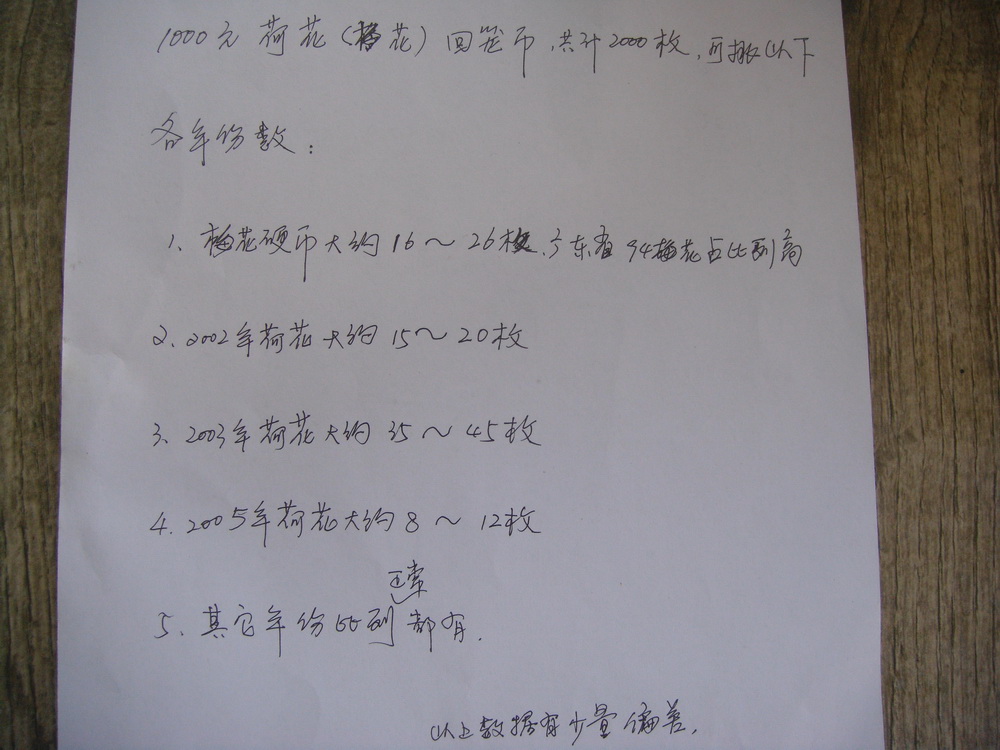 1000元荷花(梅花)回笼币,共计2000枚,可挑以下
各年份数:
1、梅花硬币大约16～26枚、广东省94梅花占比列高
2、2002年荷花大约15～20枚
3、2003年荷花大约35～45枚
4.2005年荷花大约8～12枚
正常
5、其它年份比列都有.
以上数据有少量偏差.